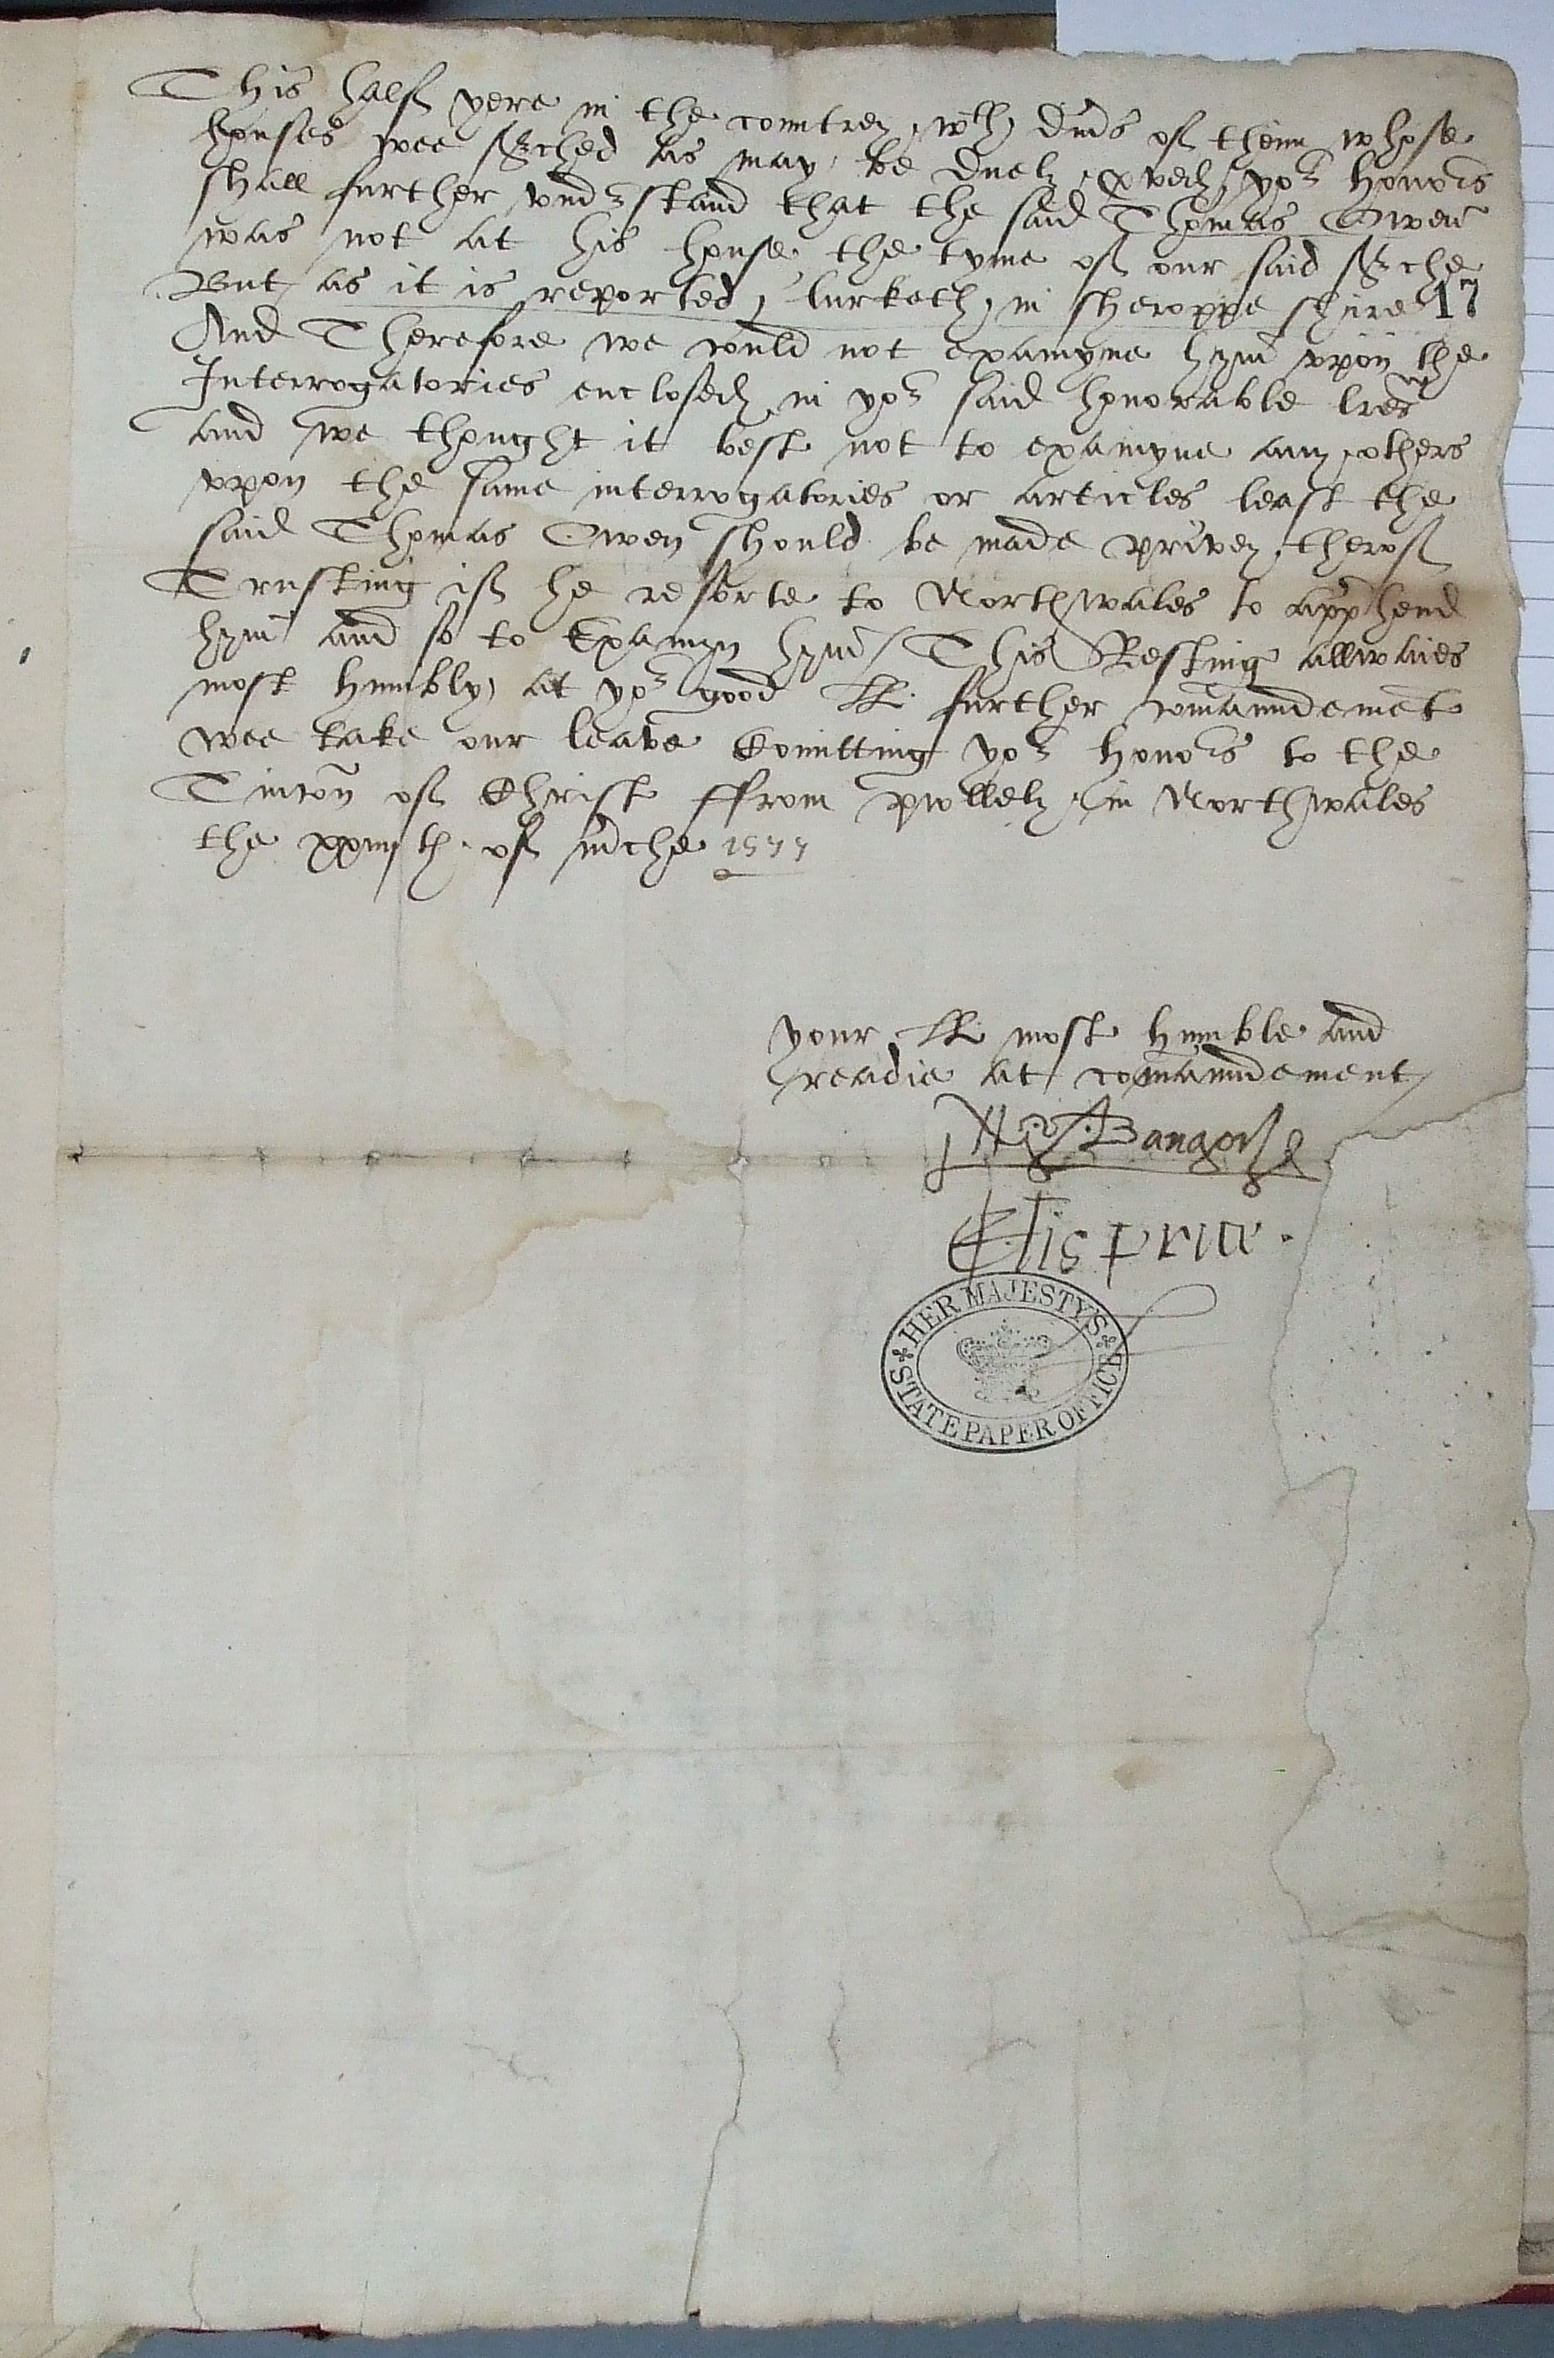 This half yere in the countrey wth diuers of theim whose
houses wee serched as may be duely proved yor honors
shall further understand that the said Thomas Owen
was not at his house the tyme of our said serche
But as it is reported lurketh in sheroppe shire 17
And Therefore we would not examyne hym upon the
Interrogatories enclosed in yor said honorable lres
and we thought it best not to examyne any others
upon the same interrogatories or articles least the
said Thomas Owen should be made privey therof
Trusting if he resorte to Northwales to apphend
hym and so to Examyn hym / This Resting allwaies
most humbly at yor good LL: further comaundement
wee take our leave Comitting yor honors to the
of Christ ffrom pwllely in Northwales
the of mche 1577
your LL: most humble and
readie at comaundement
N: Bangor
Elis Price.
HER MAJESTY'S
STATE PAPER OFFICE